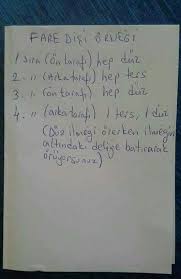 FARE DİŞİ ÖRNEĞİ
1 sıra (ön tarafı) hep düz
2. " (Arka tarafı) hep ters
3. " (ön tarafı) hep düz
4. " (arka tarafı) 1 ters, 1 düz
(Düz ilmeği örerken ilmeğin
altındaki deliğe batırarak
örüyorsunuz)